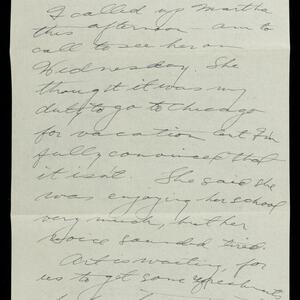 I called up Martha
this afternoon - am to
call to see her on
Wednesday. She
thought it was my
duty to go to Chicago
for vacation but I'm
fully convinced that
it isn't. She said she
was enjoying her school
very much, but her
voice sounded tired.
Art is waiting for
us to get some refreshments